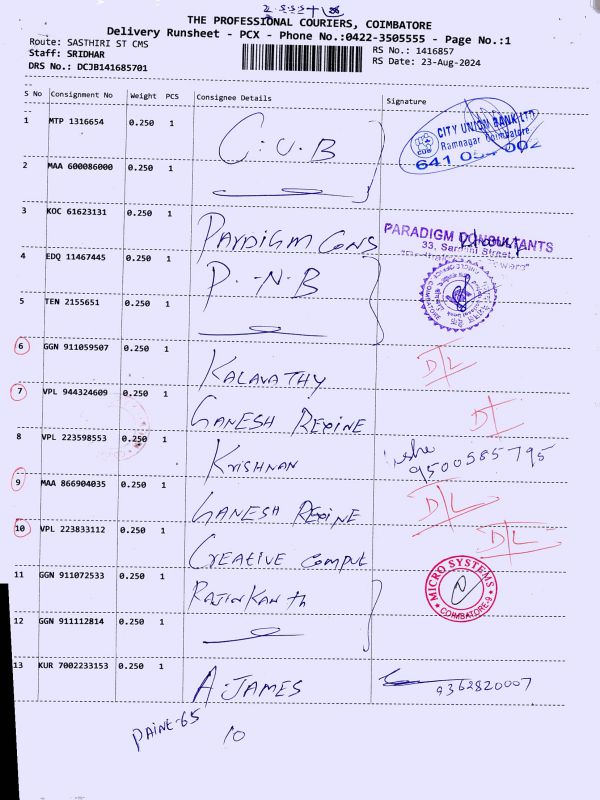 THE PROFESSIONAL COURIERS, COIMBATORE
Delivery Runsheet - PCX - Phone No.:0422-3505555 - Page No.:1
Route: SASTHIRI ST CMS
RS No.: 1416857
Staff: SRIDHAR
RS Date: 23-Aug-2024
DRS No.: DCJB141685701
S No Consignment No Weight PCS Consignee Details Signature
1 MTP 1316654 0.250 1 C.U.B CITY UNION BANK LTD
Ramnagar Coimbatore
CUB
641 002
2 MAA 600086000 0.250 1
3 KOC 61623131 0.250 1 PARDIGM CONS PARADIGM CONSULTANTS
33,
4 EDQ 11467445 0.250 1 P.N.B
5 TEN 2155651 0.250 1
6 GGN 911059507 0.250 1 KALAVATHY D/L
7 VPL 944324609 0.250 1 GANESH REXINE D/L
8 VPL 223598553 0.250 1 KRISHNAN
9500585795
9 MAA 866904035 0.250 1 GANESH REXINE D/L
10 VPL 223833112 0.250 1 CREATIVE COMPUT D/L
11 GGN 911072533 0.250 1 RAJINIKANTH MICRO SYSTEMS
COIMBATORE-9
12 GGN 911112814 0.250 1
13 KUR 7002233153 0.250 1 A.JAMES 9362820007
10